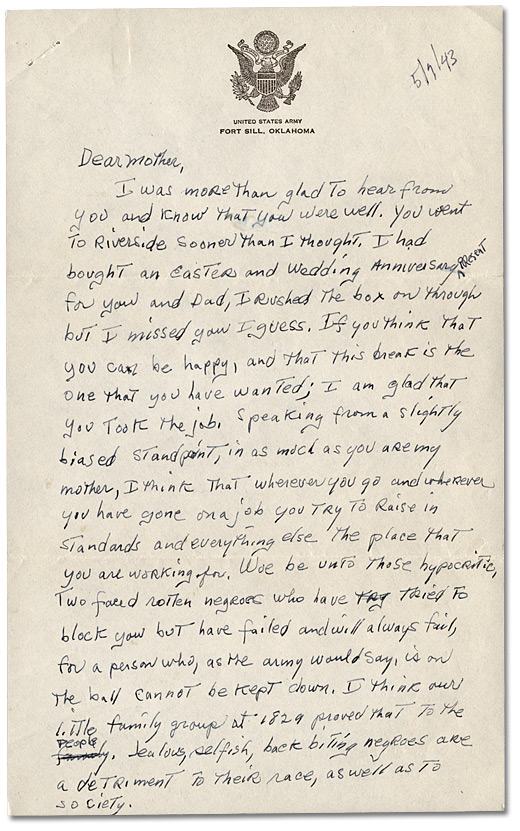 5/7/43
UNITED STATES ARMY
FORT SILL, OKLAHOMA
Dear mother,
I was more than glad to hear from
you and know that you were well. You went
to Riverside sooner than I thought. I had
bought an Easter and Wedding Anniversary present
for you and Dad, I rushed the box on through
but I missed you I guess. If you think that
you can be happy, and that this break is the
one that you have wanted; I am glad that
you took the job. Speaking from a slightly
biased standpoint, in as much as you are my
mother, I think that wherever you go and wherever
you have gone on a job you try to raise in
standards and everything else the place that
you are working for. Woe be unto those hypocritic,
two faced rotten negroes who have try tried to
block you but have failed and will always fail,
for a person who, as the army would say, is on
the ball cannot be kept down. I think our
little family group at 1829 proved that to the
people family. Jealous, selfish, back biting negroes are
a detriment to their race, as well as to
society.